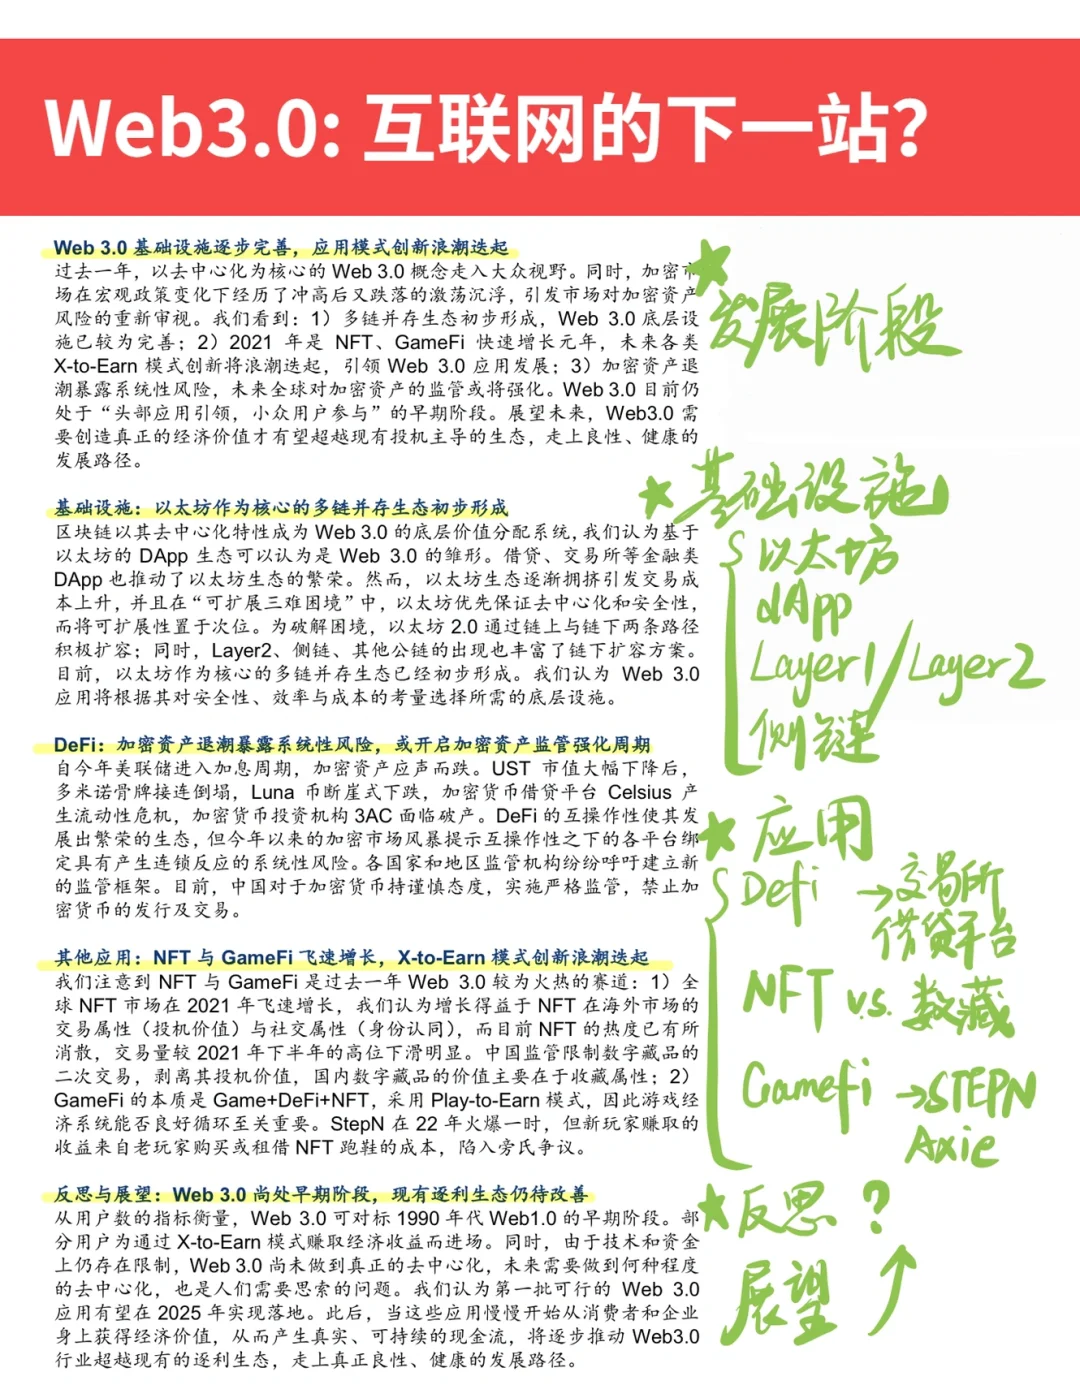 Web3.0: 互联网的下一站？
Web 3.0 基础设施逐步完善，应用模式创新浪潮迭起
过去一年，以去中心化为核心的 Web 3.0 概念走入大众视野。同时，加密市
场在宏观政策变化下经历了冲高后又跌落的激荡沉浮，引发市场对加密资产
风险的重新审视。我们看到：1）多链并存生态初步形成，Web 3.0 底层设
施已较为完善；2）2021 年是 NFT、GameFi 快速增长元年，未来各类
X-to-Earn 模式创新将浪潮迭起，引领 Web 3.0 应用发展；3）加密资产退
潮暴露系统性风险，未来全球对加密资产的监管或将强化。Web 3.0 目前仍
处于“头部应用引领，小众用户参与”的早期阶段。展望未来，Web3.0 需
要创造真正的经济价值才有望超越现有投机主导的生态，走上良性、健康的
发展路径。
发展阶段
基础设施：以太坊作为核心的多链并存生态初步形成
区块链以其去中心化特性成为 Web 3.0 的底层价值分配系统，我们认为基于
以太坊的 DApp 生态可以认为是 Web 3.0 的雏形。借贷、交易所等金融类
DApp 也推动了以太坊生态的繁荣。然而，以太坊生态逐渐拥挤引发交易成
本上升，并且在“可扩展三难困境”中，以太坊优先保证去中心化和安全性，
而将可扩展性置于次位。为破解困境，以太坊 2.0 通过链上与链下两条路径
积极扩容；同时，Layer2、侧链、其他公链的出现也丰富了链下扩容方案。
目前，以太坊作为核心的多链并存生态已经初步形成。我们认为 Web 3.0
应用将根据其对安全性、效率与成本的考量选择所需的底层设施。
基础设施
以太坊
dApp
Layer1/Layer2
侧链
DeFi：加密资产退潮暴露系统性风险，或开启加密资产监管强化周期
自今年美联储进入加息周期，加密资产应声而跌。UST 市值大幅下降后，
多米诺骨牌接连倒塌，Luna 币断崖式下跌，加密货币借贷平台 Celsius 产
生流动性危机，加密货币投资机构 3AC 面临破产。DeFi 的互操作性使其发
展出繁荣的生态，但今年以来的加密市场风暴提示互操作性之下的各平台绑
定具有产生连锁反应的系统性风险。各国家和地区监管机构纷纷呼吁建立新
的监管框架。目前，中国对于加密货币持谨慎态度，实施严格监管，禁止加
密货币的发行及交易。
其他应用：NFT 与 GameFi 飞速增长，X-to-Earn 模式创新浪潮迭起
我们注意到 NFT 与 GameFi 是过去一年 Web 3.0 较为火热的赛道：1）全
球 NFT 市场在 2021 年飞速增长，我们认为增长得益于 NFT 在海外市场的
交易属性（投机价值）与社交属性（身份认同），而目前 NFT 的热度已有所
消散，交易量较 2021 年下半年的高位下滑明显。中国监管限制数字藏品的
二次交易，剥离其投机价值，国内数字藏品的价值主要在于收藏属性；2）
GameFi 的本质是 Game+DeFi+NFT，采用 Play-to-Earn 模式，因此游戏经
济系统能否良好循环至关重要。StepN 在 22 年火爆一时，但新玩家赚取的
收益来自老玩家购买或租借 NFT 跑鞋的成本，陷入旁氏争议。
应用
Defi →交易所
借贷平台
NFT v.s. 数藏
Gamefi →STEPN
Axie
反思与展望：Web 3.0 尚处早期阶段，现有逐利生态仍待改善
从用户数的指标衡量，Web 3.0 可对标 1990 年代 Web1.0 的早期阶段。部
分用户为通过 X-to-Earn 模式赚取经济收益而进场。同时，由于技术和资金
上仍存在限制，Web 3.0 尚未做到真正的去中心化，未来需要做到何种程度
的去中心化，也是人们需要思索的问题。我们认为第一批可行的 Web 3.0
应用有望在 2025 年实现落地。此后，当这些应用慢慢开始从消费者和企业
身上获得经济价值，从而产生真实、可持续的现金流，将逐步推动 Web3.0
行业超越现有的逐利生态，走上真正良性、健康的发展路径。
反思？
展望